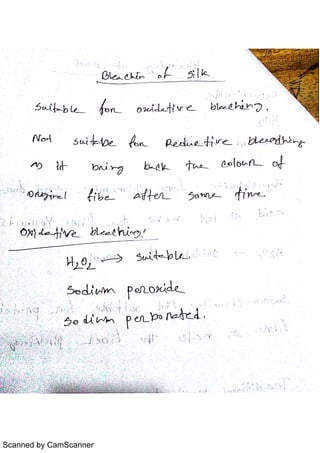 Bleachin of silk
Suitable for oxidative bleaching.
Not suitabe for Reductive bleaching
as it bring back the colour of
original fibe after some time.
Oxidative bleaching:
H2O2 → suitable
Sodium peroxide
Sodium perbonated.
Scanned by CamScanner